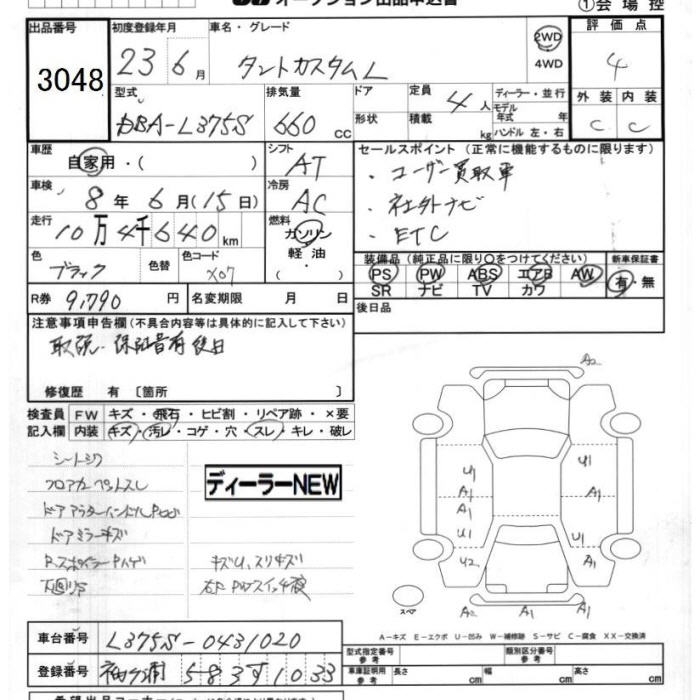 オークション出品申込書 ①会場控
出品番号 初度登録年月 車名・グレード 評価点
3048 23 6月 タントカスタムL 2WD 4WD 4
型式 排気量 ドア 定員 ディーラー・並行 外装 内装
DBA-L375S 660cc 形状 積載 4人 kg モデル年式 年 ハンドル 左・右 C C
車歴 シフト セールスポイント(正常に機能するものに限ります)
自家用・( ) AT ・ユーザー買取車
車検 8年 6月(15日) 冷房 AC ・社外ナビ
走行 10万4千640km 燃料 ガソリン 軽油 ( ) ・ETC
色 ブラック 色替 色コード X07
装備品(純正品に限り○をつけてください) 新車保証書
PS PW ABS エアB AW 有・無
SR ナビ TV カワ
R券 9,790円 名変期限 月 日 後日品
注意事項申告欄(不具合内容等は具体的に記入して下さい)
取説・保証書有後日
修復歴 有〔箇所 〕
検査員 FW キズ・飛石・ヒビ割・リペア跡・×要
記入欄 内装 キズ・汚レ・コゲ・穴・スレ・キレ・破レ
シートシワ
フロアカーペットスレ
ディーラーNEW
ドアミラーキズ
キズU、スリキズ
A2
U1 U1
A1 A1
A1
U1 U1
U2 A1
スペア A2 A1 A1
A-キズ E-エクボ U-凹み W-補修跡 S-サビ C-腐食 XX-交換済
車台番号 L375S-0431020
型式指定番号 参考 類別区分番号 参考
登録番号 袖ヶ浦 583す1033
車庫証明用 参考 長さ 幅 高さ